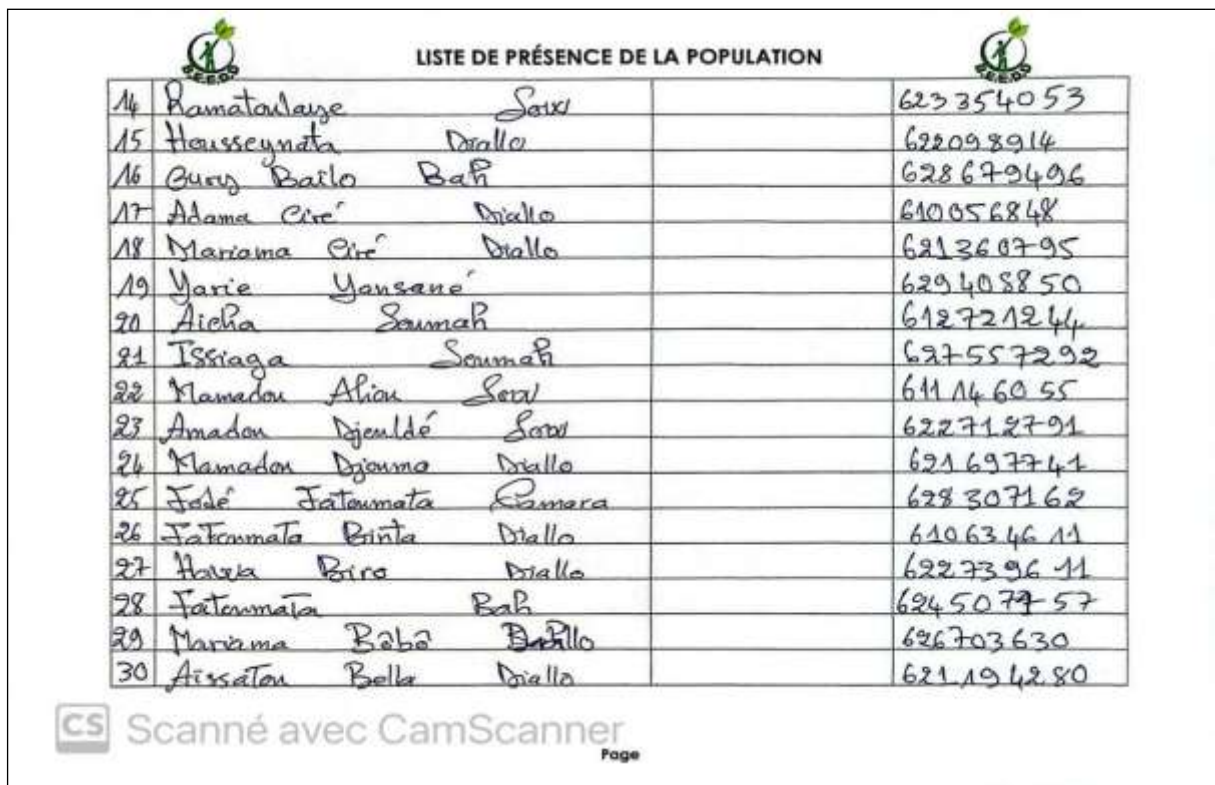 LISTE DE PRÉSENCE DE LA POPULATION
14 Ramatoulaye Sow 623354053
15 Housseynata Diallo 622098914
16 Oury Bailo Bah 628679496
17 Adama Ciré Diallo 610056848
18 Mariama Ciré Diallo 621360795
19 Yarie Yansané 629408850
20 Aicha Soumah 612721244
21 Issiaga Soumah 627557292
22 Mamadou Aliou Sow 611146055
23 Amadou Djouldé Sow 622712791
24 Mamadou Djouma Diallo 621697741
25 Fodé Fatoumata Camara 628307162
26 Fatoumata Binta Diallo 610634611
27 Hawa Biro Diallo 622739611
28 Fatoumata Bah 624507757
29 Mariama Bobo 626703630
30 Aissatou Bella Diallo 621194280
CS Scanné avec CamScanner
Page